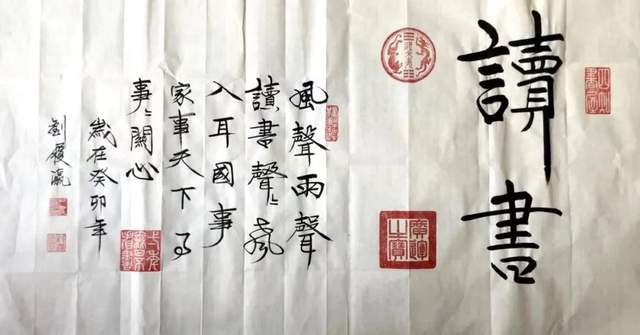 讀書
風聲雨聲
讀書聲〻聲
入耳國事
家事天下事
事〻關心
歲在癸卯年
劉